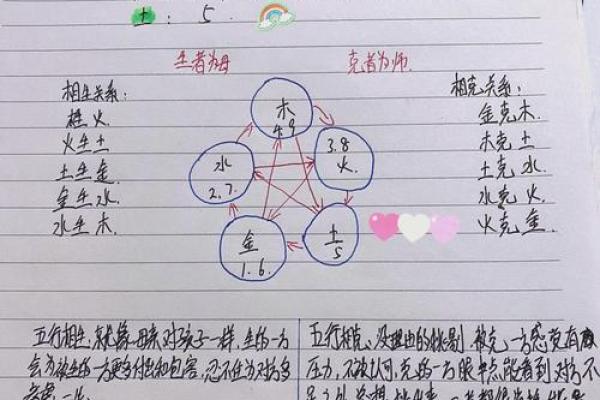 土: 5
生者为母
克者为师.
相生关系:
木生火
火生土
土生金
金生水
水生木.
木
4.9
3.8
火.
水
2.7.
金
1.6.
土
5
相克关系:
金克木.
木克土
土克水.
水克火
火克金.
五行相生,就像母亲对孩子一样,生的一方
会为被生的一方更多付出和包容,忍不住为对方多
五行相克,没理由的挑剔,被克一方感觉有
压力,不被认可,克的一方眼中总能看到对方不